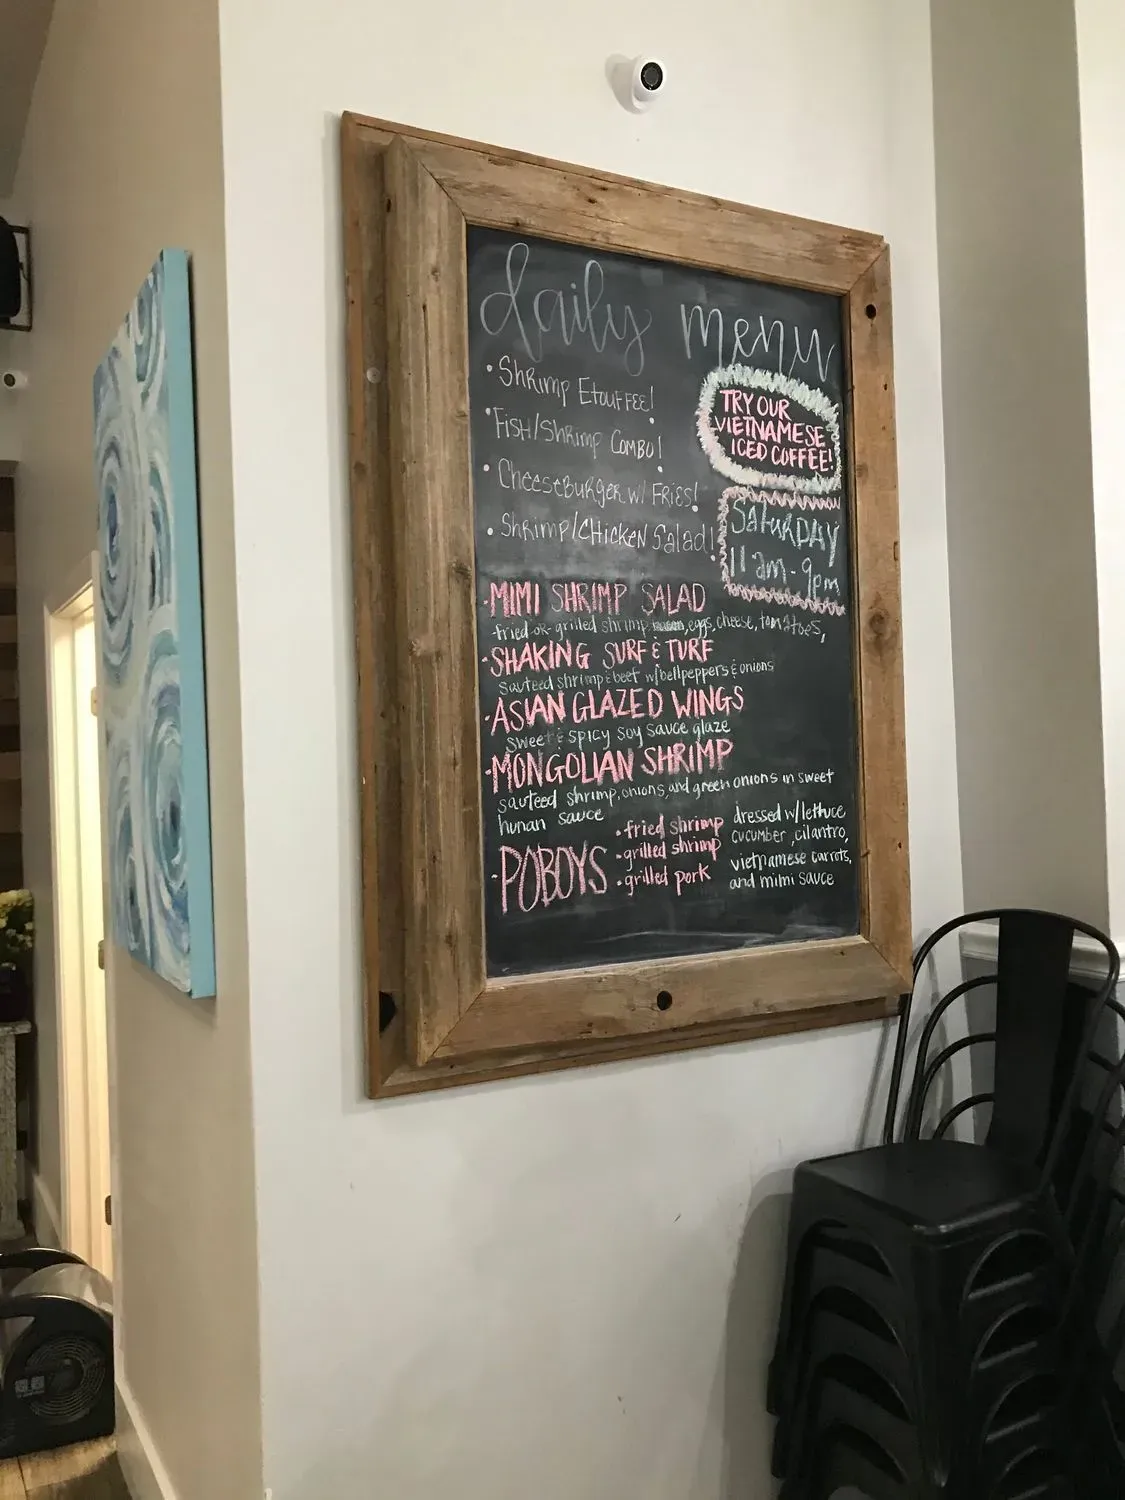 daily menu
• Shrimp Etouffee!
• Fish/Shrimp Combo!
• Cheeseburger w/ Fries!
• Shrimp/Chicken Salad!
TRY OUR
VIETNAMESE
ICED COFFEE!
Saturday
11am-9pm
• MIMI SHRIMP SALAD
fried-or-grilled shrimp, eggs, cheese, tomatoes,
• SHAKING SURF & TURF
sauteed shrimp & beef w/bellpeppers & onions
• ASIAN GLAZED WINGS
sweet & spicy soy sauce glaze
• MONGOLIAN SHRIMP
sauteed shrimp, onions, and green onions in sweet
hunan sauce
• POBOYS
• fried shrimp
• grilled shrimp
• grilled pork
dressed w/lettuce
cucumber, cilantro,
vietnamese carrots,
and mimi sauce